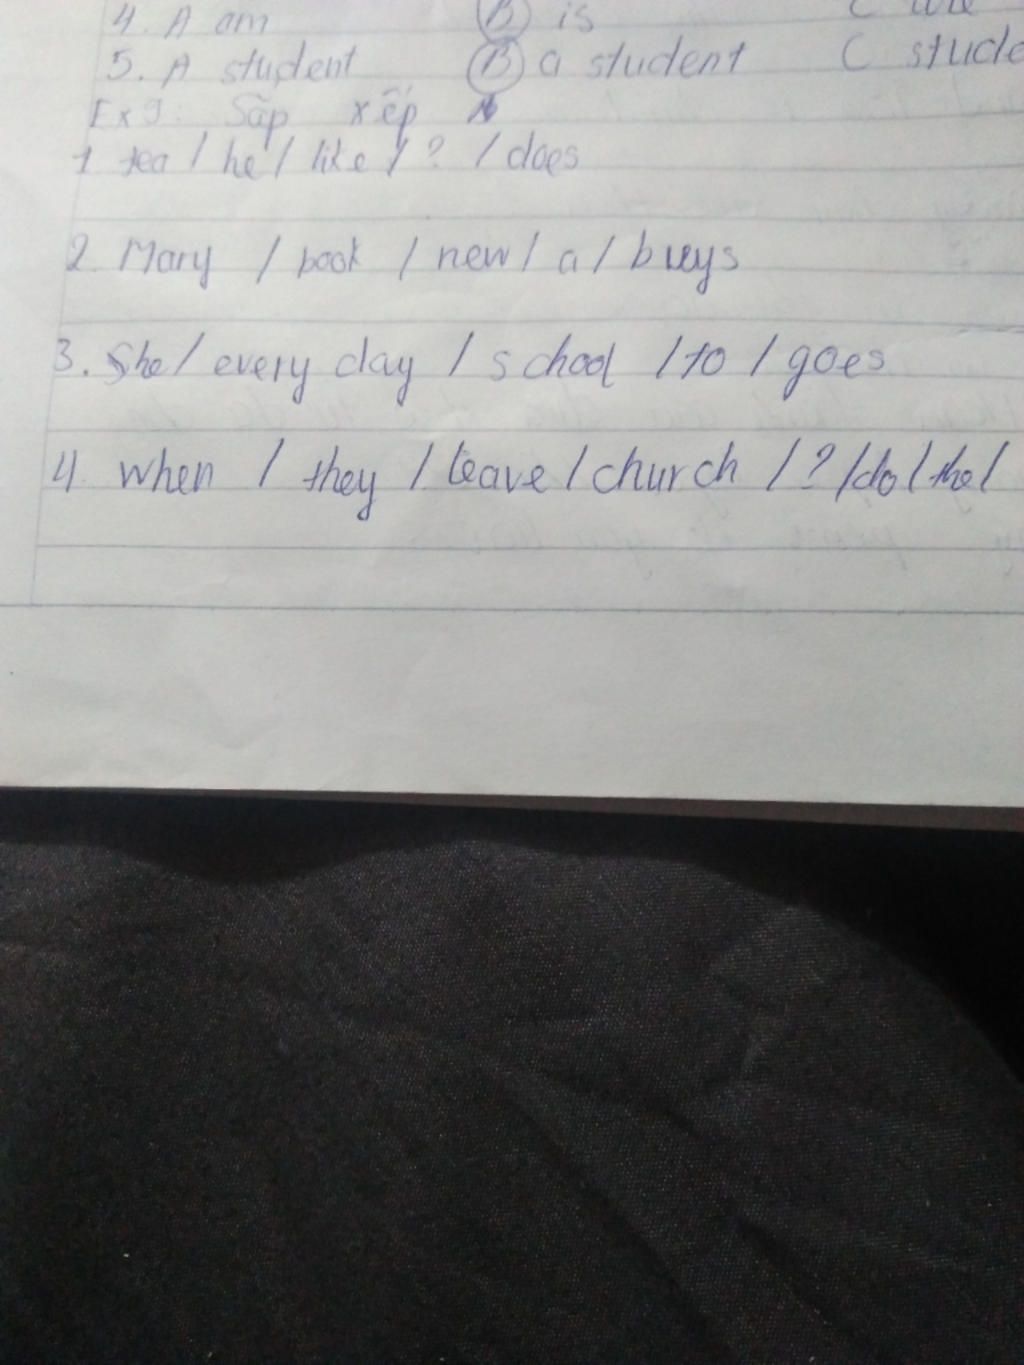 4. A am B is C are
5. A student B a student C stude
Ex 9: Sắp xếp
1 tea / he / like / ? / does
2. Mary / book / new / a / buys
3. She / every day / school / to / goes
4. when / they / leave / church / ? / do / the /